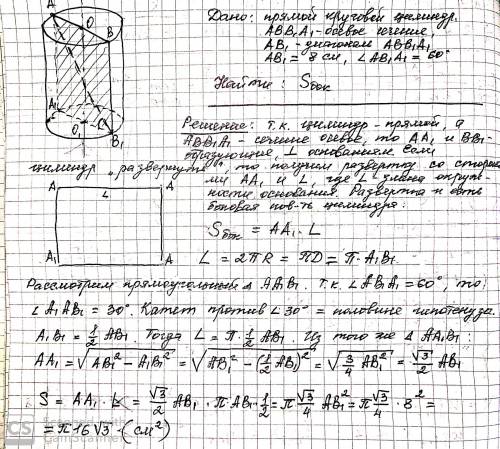 Дано: прямой круговой цилиндр.
ABB₁A₁ - осевое сечение,
AB₁ - диагональ ABB₁A₁
AB₁ = 8 см, ∠AB₁A₁ = 60°
Найти: Sбок
A
O
B
A₁
O₁
B₁
Решение: т.к. цилиндр - прямой, а
ABB₁A₁ - сечение осевое, то AA₁ и BB₁ -
образующие, ⊥ основаниям. Если
цилиндр "развернуть", то получим развертку со сторона-
ми AA₁ и L, где L - длина окруж-
ности основания. Развертка и есть
боковая пов-ть цилиндра:
A L A
A₁ A
Sбок = AA₁ · L
L = 2πR = πD = π · A₁B₁
Рассмотрим прямоугольный Δ AA₁B₁. Т.к. ∠AB₁A₁ = 60°, то
∠A₁AB₁ = 30°. Катет против ∠30° = половине гипотенузы.
A₁B₁ = 1/2 AB₁. Тогда L = π · 1/2 AB₁. Из того же Δ AA₁B₁:
AA₁ = √(AB₁² - A₁B₁²) = √(AB₁² - (1/2 AB₁)²) = √(3/4 AB₁²) = √3/2 AB₁
S = AA₁ · L = √3/2 AB₁ · π AB₁ · 1/2 = π √3/4 AB₁² = π √3/4 · 8² =
= π16√3 (см²)
CS
CamScanner